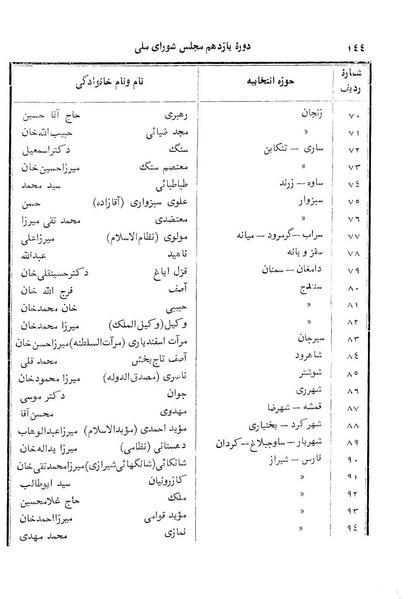 ۱٤٤ دورهٔ یازدهم مجلس شورای ملی
شمارهٔ ردیف حوزه انتخابیه نام ونام خانوادگی
۷۰ زنجان رهبری حاج آقا حسین
۷۱ » مجد ضیائی حبیب‌الله‌خان
۷۲ ساری – تنکابن سنگ دکتراسمعیل
۷۳ » معتصم سنگ میرزاحسین‌خان
۷٤ ساوه – زرند طباطبائی سید محمد
۷٥ سبزوار علوی سبزواری (آقازاده) حسن
۷٦ » معتضدی محمد تقی میرزا
۷۷ سراب – گرمرود – میانه مولوی (نظام‌الاسلام) میرزاعلی
۷۸ سقز و بانه ناهید عبدالله
۷۹ دامغان – سمنان قزل ایاغ دکترحسینقلی‌خان
۸۰ سنندج آصف فرج الله خان
۸۱ » حبیبی خان محمدخان
۸۲ » وکیل (وکیل‌الملک) میرزا محمدخان
۸۳ سیرجان مرآت اسفندیاری (مرآت‌السلطنه) میرزاحسن‌خان
۸٤ شاهرود آصف تاج‌بخش محمد قلی
۸٥ شوشتر ناصری (مصدق‌الدوله) میرزا محمودخان
۸٦ شهرری جوان دکتر موسی
۸۷ قمشه – شهرضا مهدوی محسن‌آقا
۸۸ شهرکرد – بختیاری مؤید احمدی (مؤیدالاسلام) میرزاعبدالوهاب
۸۹ شهریار – ساوجبلاغ – کردان دهستانی (نظامی) میرزا یداله‌خان
۹۰ فارس – شیراز شانکائی (شانگهائی‌شیرازی) میرزامحمدتقی‌خان
۹۱ » کازرونیان سید ابوطالب
۹۲ » ملک حاج غلامحسین
۹۳ » مؤید قوامی میرزااحمدخان
۹٤ » نمازی محمد مهدی